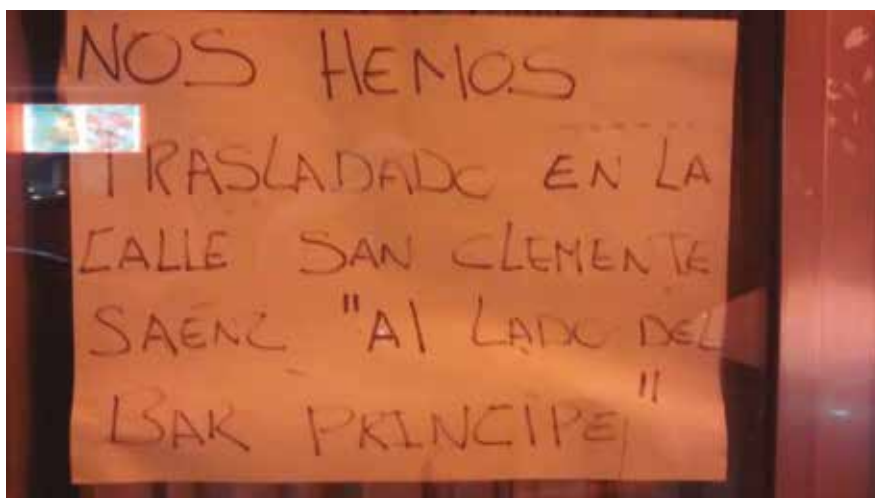 NOS HEMOS
TRASLADADO EN LA
CALLE SAN CLEMENTE
SAENZ "Al LADO DEL
BAR PRINCIPE"